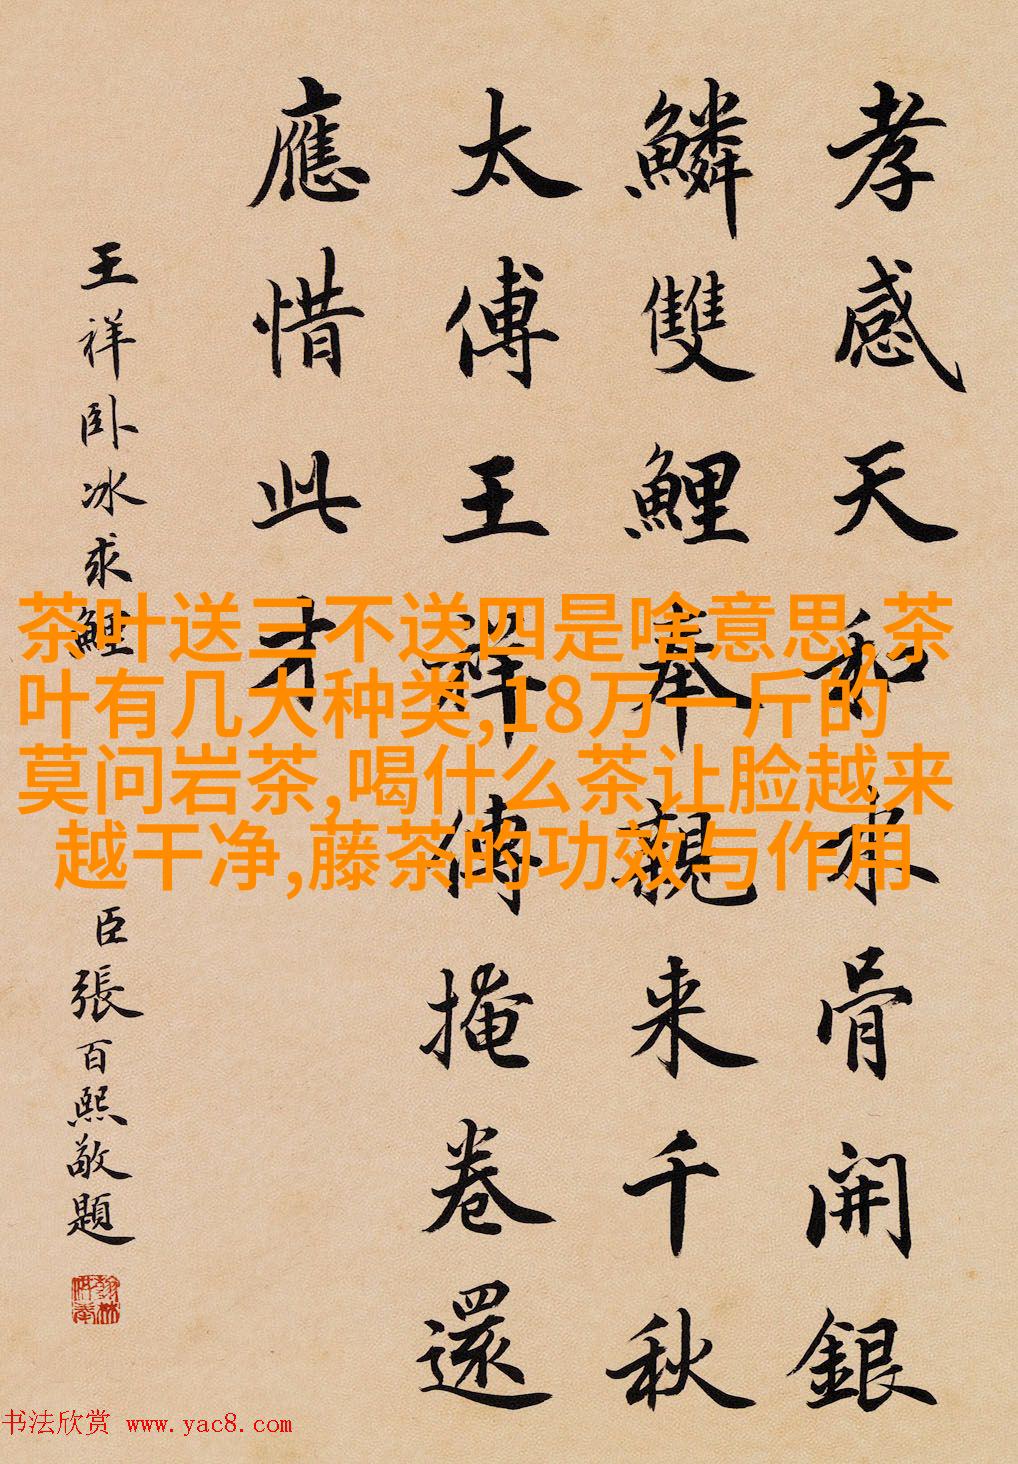 孝感天和氷骨開銀
鱗雙鯉奉親来千秋
太傅王祥傳掩卷還
應惜此才
王祥卧冰求鯉
臣張百熙敬題
茶叶送三不送四是啥意思,茶
叶有几大种类,18万一斤的
莫问岩茶,喝什么茶让脸越来
越干净,藤茶的功效与作用
书法欣赏 www.yac8.com